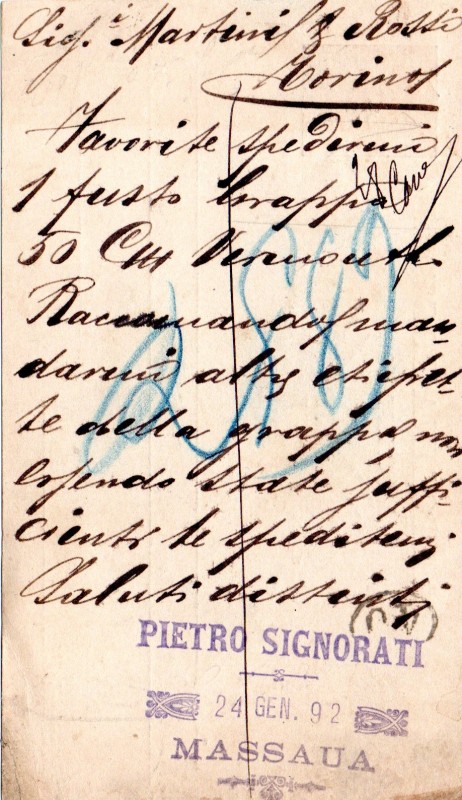 Sig.ri Martini & Rossi
Torino
Favorite spedirmi
1 fusto Grappa
50 Css Vermouth
Raccomandos man-
darmi altre etichet-
te della grappa non
essendo state suffi-
cienti le speditemi
Saluti distinti
PIETRO SIGNORATI
24 GEN. 92
MASSAUA